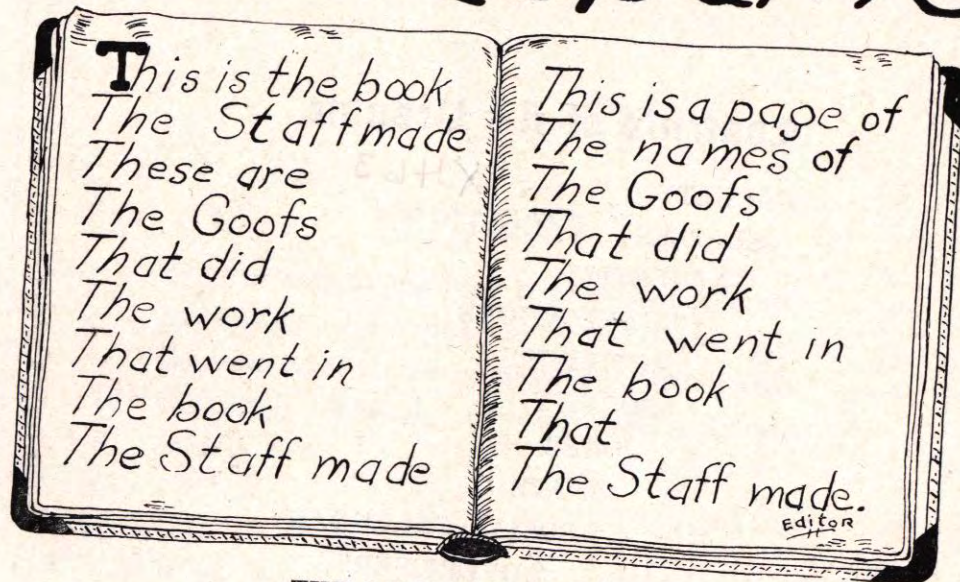 This is the book
The Staff made
These are
The Goofs
That did
The work
That went in
The book
The Staff made
This is a page of
The names of
The Goofs
That did
The work
That went in
The book
That
The Staff made.
Editor